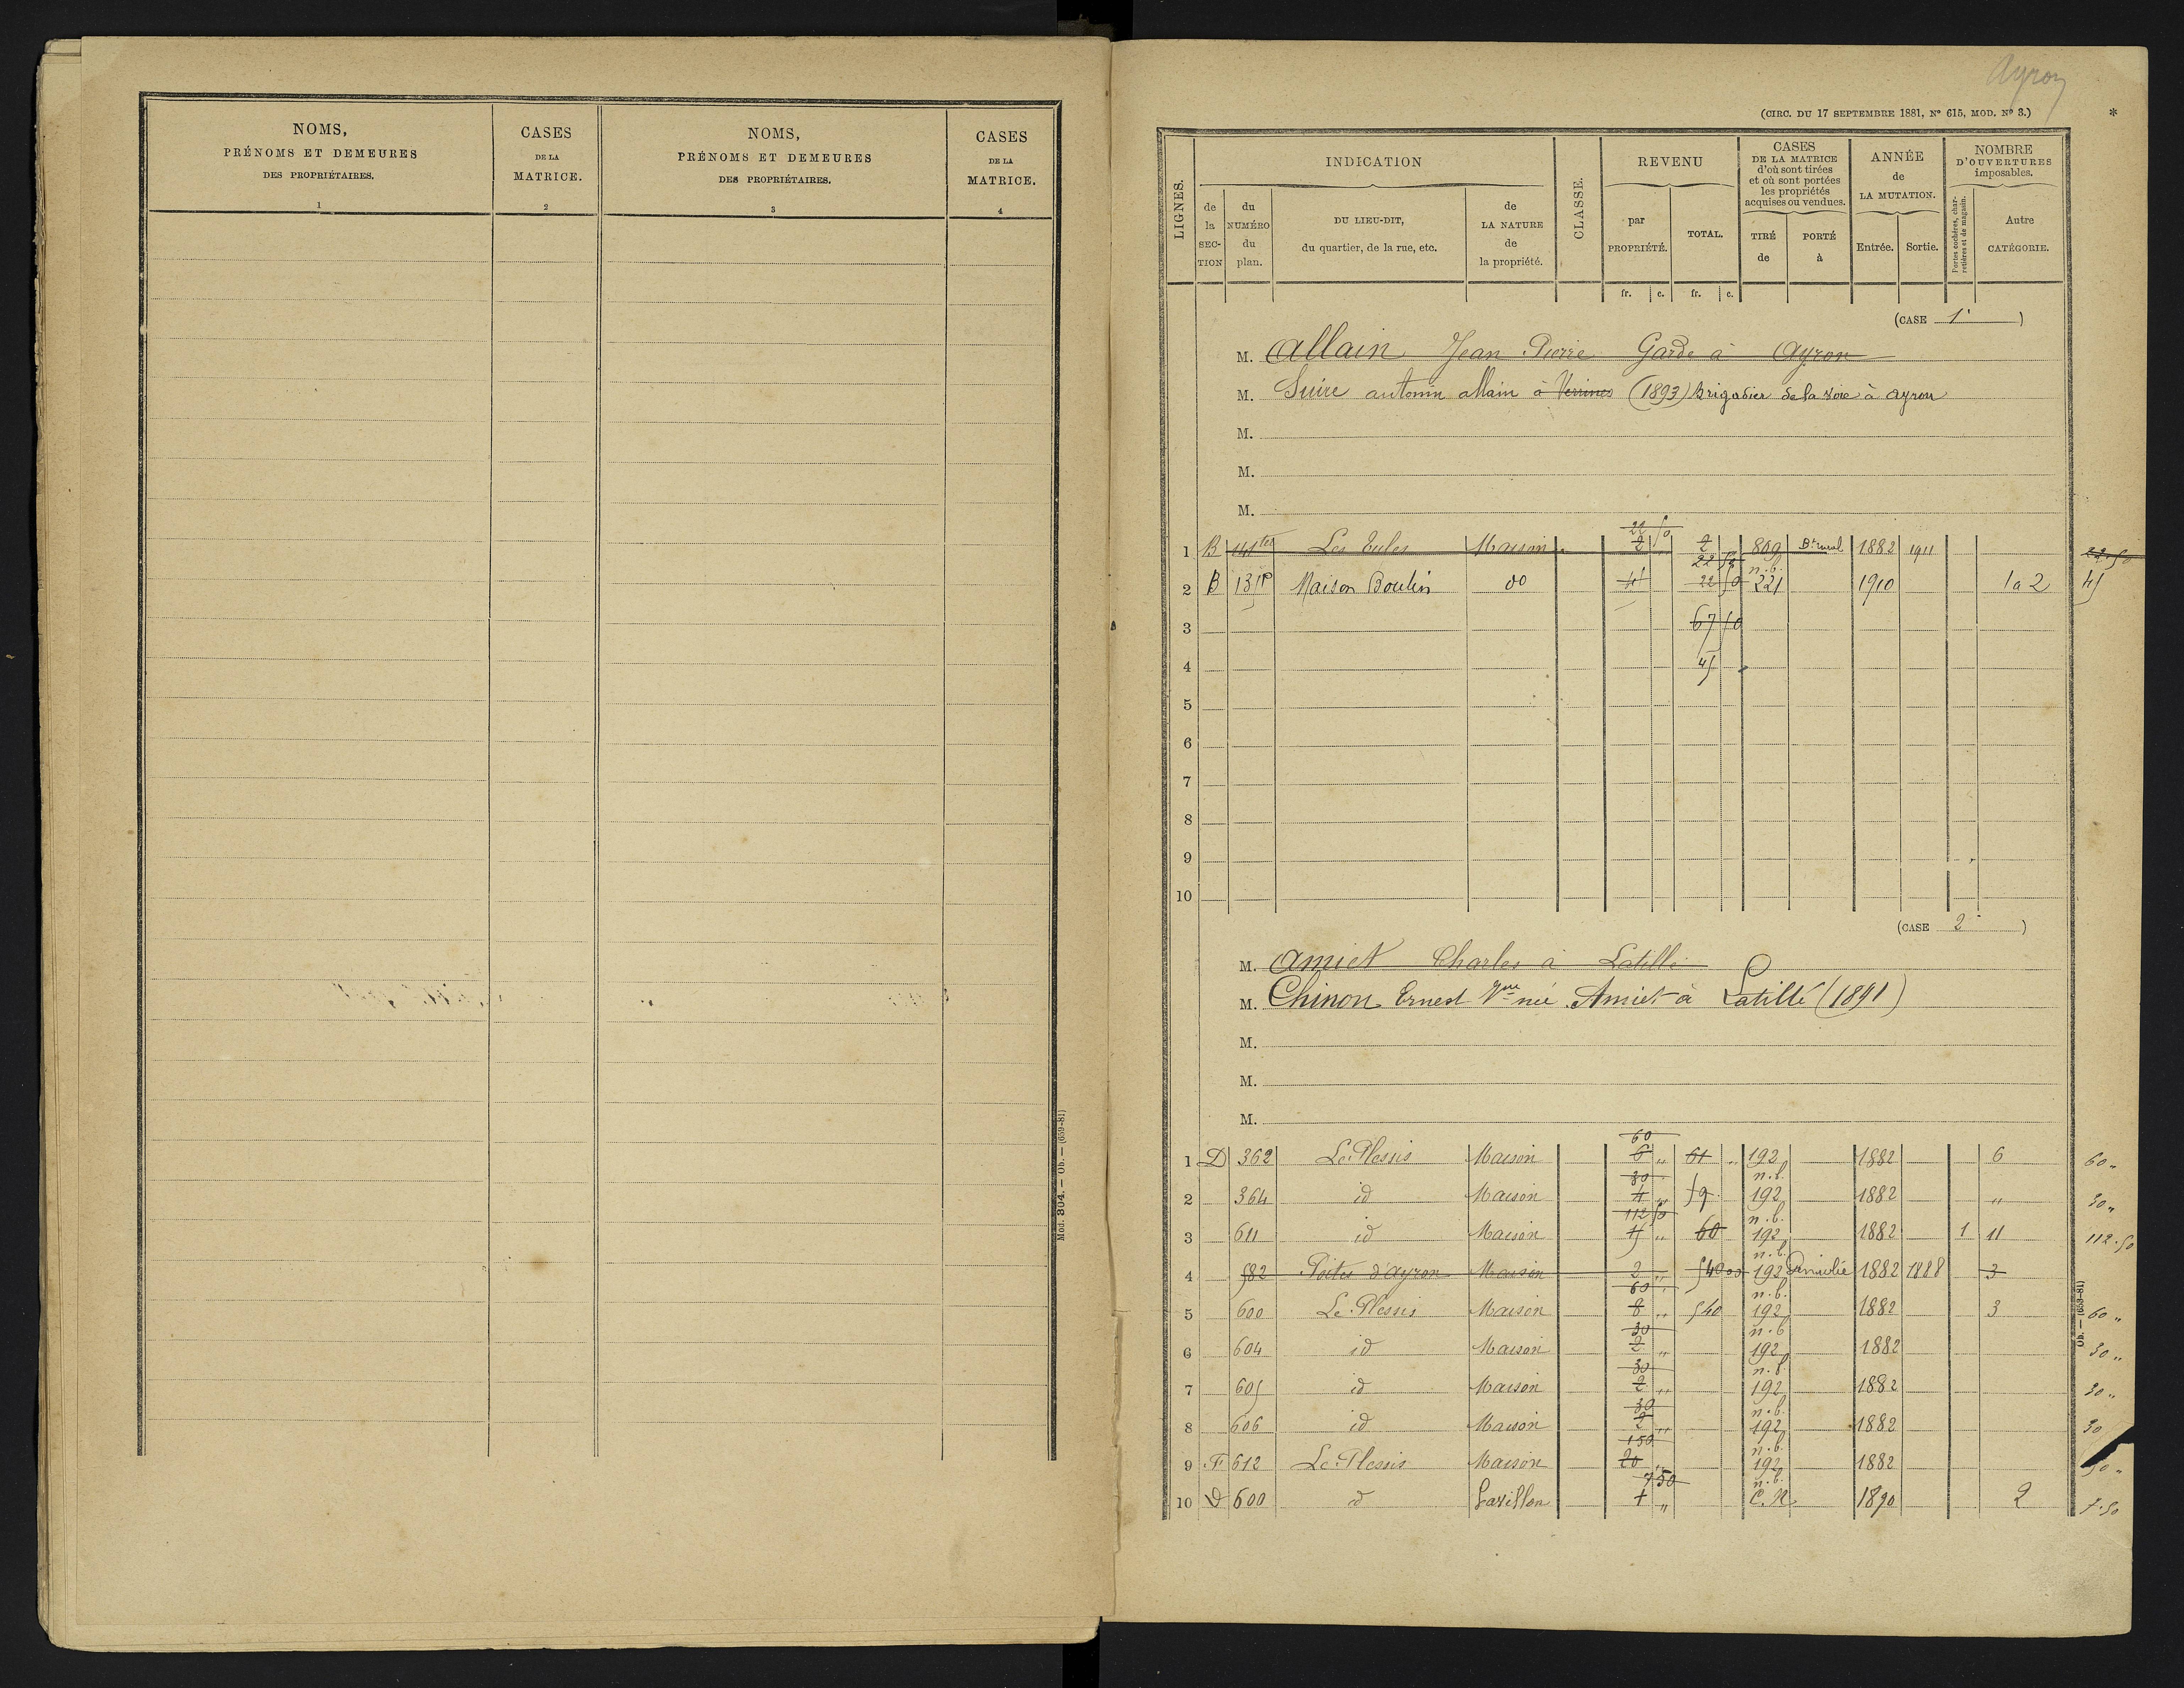 NOMS,
PRÉNOMS ET DEMEURES
DES PROPRIÉTAIRES.
1
CASES
DE LA
MATRICE.
2
NOMS,
PRÉNOMS ET DEMEURES
DES PROPRIÉTAIRES.
3
CASES
DE LA
MATRICE.
4
Mod. 304. — Ob. — (659-81)
Ayron
(CIRC. DU 17 SEPTEMBRE 1881, N° 615, MOD. N° 3.)
*
LIGNES.
INDICATION
de la SECTION
du NUMÉRO du plan.
DU LIEU-DIT,
du quartier, de la rue, etc.
de LA NATURE de la propriété.
CLASSE.
REVENU
par PROPRIÉTÉ.
TOTAL.
fr. c. fr. c.
CASES
DE LA MATRICE
d'où sont tirées
et où sont portées
les propriétés
acquises ou vendues.
TIRÉ de
PORTÉ à
ANNÉE
de
LA MUTATION.
Entrée. Sortie.
NOMBRE
D'OUVERTURES
imposables.
Portes cochères, charretières et de magasin.
Autre CATÉGORIE.
(CASE 1 )
M. Allain Jean Pierre Garde à Ayron
M. Suire antonin allain à Verrines (1893) Brigadier de la voie à ayron
M.
M.
M.
22 50
1 B 141 ter Les Eules Maison 2 2 809 Bt rural 1882 1911 22.50
22 50 n.b.
2 B 131 P Maison Boulin do 45 22 50 221 1910 1 a 2 45
3 67 50
4 45
5
6
7
8
9
10
(CASE 2 )
M. Amiet Charles à Latillé
M. Chinon Ernest Vve née Amiet à Latillé (1891)
M.
M.
M.
60
1 D 362 Le Plessis Maison 6 " 61 " 192 1882 6 60 "
30 n.b.
2 364 id Maison 4 " 59 192 1882 " 30 "
112 50 n.b.
3 611 id Maison 15 " 60 192 1882 1 11 112.50
n.b.
4 582 Portes d'Ayron Maison 2 " 540 00 192 1882 1888 3
60 n.b.
5 600 Le Plessis Maison 8 " 540 192 1882 3 60 "
30 n.b.
6 604 id Maison 2 " 192 1882 30 "
30 n.b.
7 605 id Maison 2 " 192 1882 30 "
30 n.b.
8 606 id Maison 2 " 192 1882 30
150 n.b.
9 F 612 Le Plessis Maison 20 " 192 1882
7 50 n.b.
10 D 600 d Pavillon 1 " C.N. 1890 2 7.50
Ob. — (659-81)